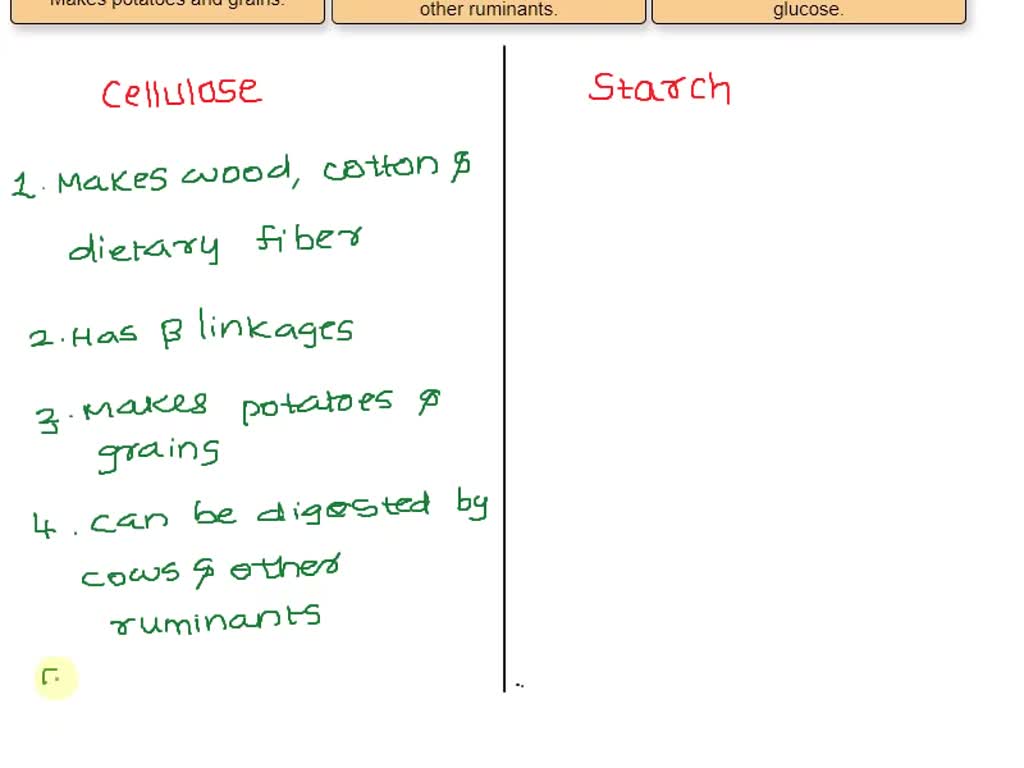 Makes potatoes and grains.
other ruminants.
glucose.
Cellulose
Starch
1. Makes wood, cotton &
dietary fiber
2. Has β linkages
3. Makes potatoes &
grains
4. can be digested by
cows & other
ruminants